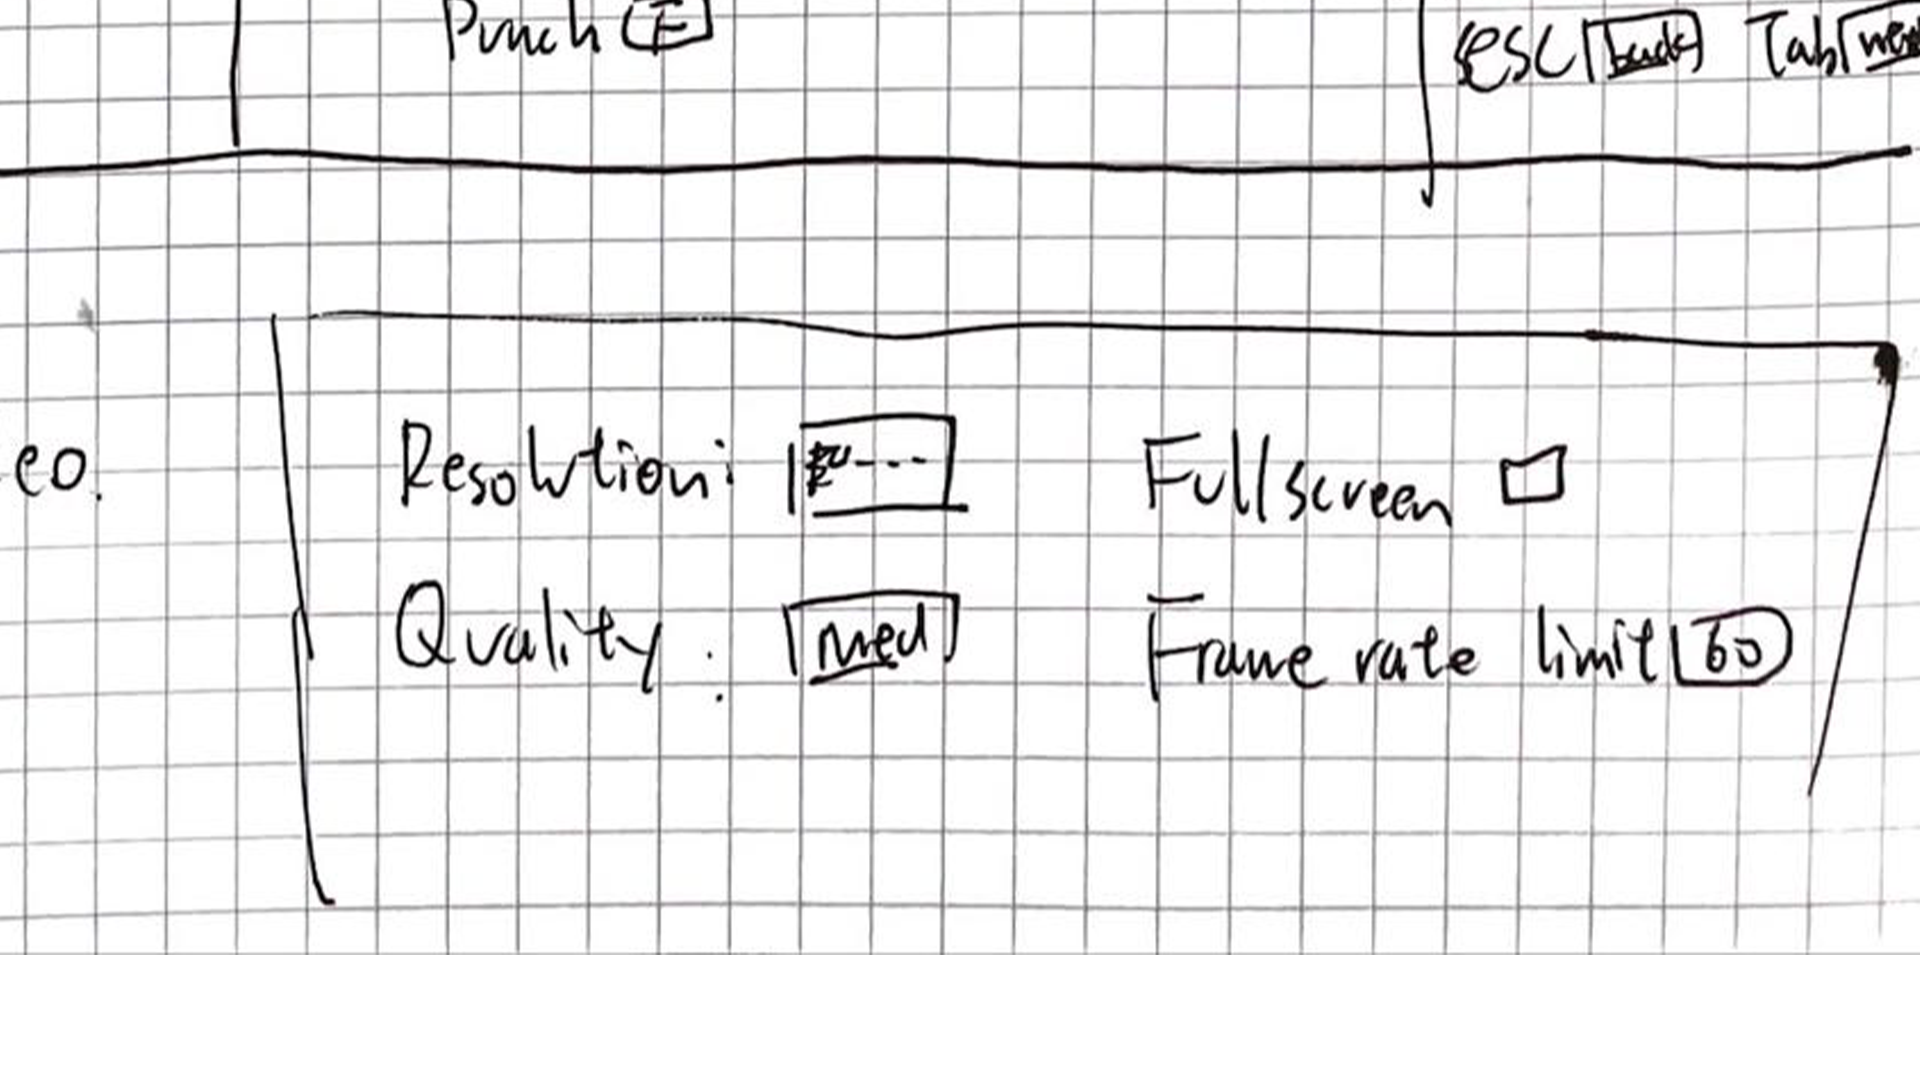 Punch F
esc back Tab
eo.
Resolution: Fullscreen
Quality: med Frame rate limit 60